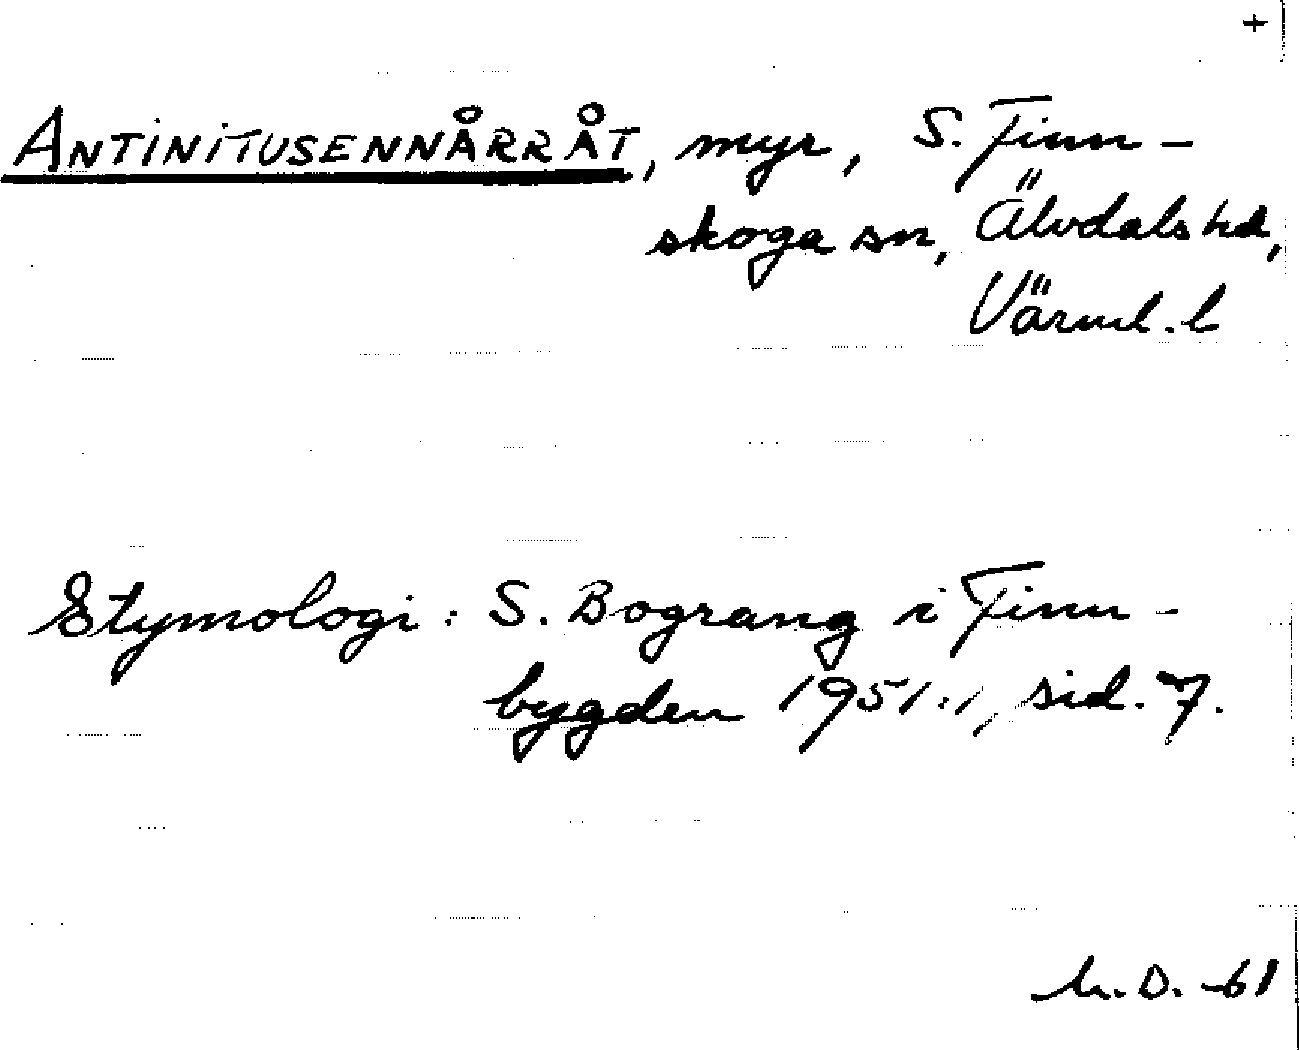 +
ANTINITUSENNÅRRÅT, myr, S. Finn-
skoga sn, Älvdals hd,
Värml. l
Etymologi: S. Bograng i Finn-
bygden 1951:1, sid. 7.
h. D. -61